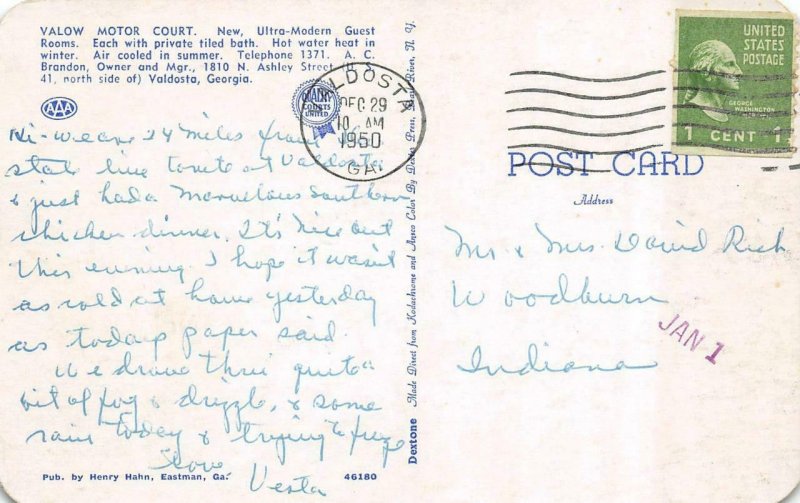 VALOW MOTOR COURT. New, Ultra-Modern Guest
Rooms. Each with private tiled bath. Hot water heat in
winter. Air cooled in summer. Telephone 1371. A. C.
Brandon, Owner and Mgr., 1810 N. Ashley Street
41, north side of) Valdosta, Georgia.
AAA
QUALITY
COURTS
UNITED
VALDOSTA
DEC 29
10 AM
1950
GA.
Hi - we are 24 miles from
state line tonite at Valdosta
& just had a marvelous Southern
chicken dinner. It's nice out
this evening. I hope it wasn't
as cold at home yesterday
as todays paper said.
We drove thru quite a
bit of fog & drizzle, & some
rain today & trying to freeze
Love
Vesta
Pub. by Henry Hahn, Eastman, Ga.
46180
Dextone Made Direct from Kodachrome and Ansco Color By Dexter Press, Pearl River, N. Y.
UNITED
STATES
POSTAGE
GEORGE
WASHINGTON
1 CENT 1
POST CARD
Address
Mr & Mrs. David Rich
Woodburn
Indiana
JAN 1